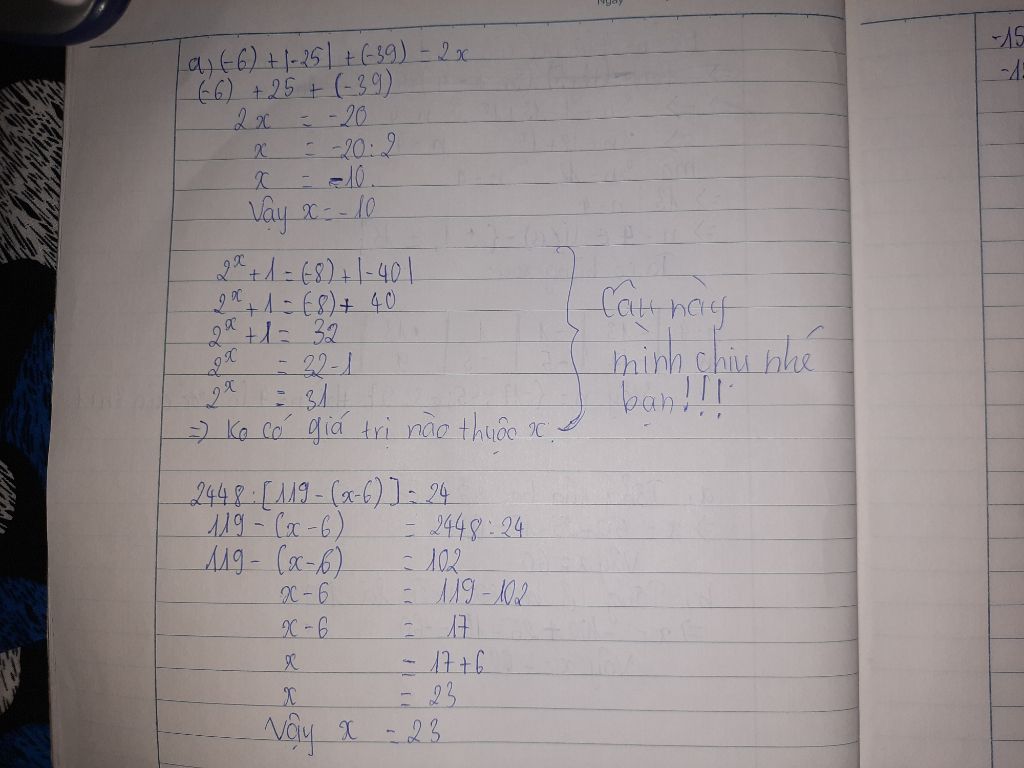 Ngày
a, (-6) + |-25| + (-39) = 2x
(-6) + 25 + (-39)
2x = -20
x = -20:2
x = -10.
Vậy x = -10
2^x + 1 = (-8) + |-40|
2^x + 1 = (-8) + 40
2^x + 1 = 32
2^x = 32-1
2^x = 31
=> Ko có giá trị nào thuộc x.
Câu này
mình chịu nhé
bạn!!!
2448 : [119 - (x-6)] = 24
119 - (x-6) = 2448 : 24
119 - (x-6) = 102
x-6 = 119-102
x-6 = 17
x = 17+6
x = 23
Vậy x = 23
-15